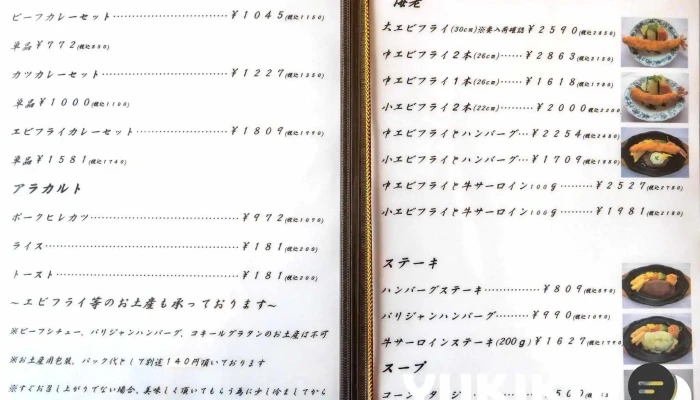 ビーフカレーセット ¥1045(税込1150)
単品¥772(税込850)
カツカレーセット ¥1227(税込1350)
単品¥1000(税込1100)
エビフライカレーセット ¥1809(税込1990)
単品¥1581(税込1740)
アラカルト
ポークヒレカツ ¥972(税込1070)
ライス ¥181(税込200)
トースト ¥181(税込200)
~エビフライ等のお土産も承っております~
※ビーフシチュー、パリジャンハンバーグ、コキールグラタンのお土産は不可
※お土産用包装、パック代として別途140円頂いております
※すぐお召し上がりでない場合、美味しく頂いてもらう為に少し冷ましてから
海老
大エビフライ(30cm)※要入荷確認¥2590(税込2850)
中エビフライ2本(26cm)¥2863(税込3150)
中エビフライ1本(26cm)¥1618(税込1780)
小エビフライ2本(22cm)¥2000(税込2200)
中エビフライとハンバーグ¥2254(税込2480)
小エビフライとハンバーグ¥1709(税込1880)
中エビフライと牛サーロイン100g¥2527(税込2780)
小エビフライと牛サーロイン100g¥1981(税込2180)
ステーキ
ハンバーグステーキ¥809(税込890)
パリジャンハンバーグ¥990(税込1090)
牛サーロインステーキ(200g)¥1627(税込1790)
スープ
コーン